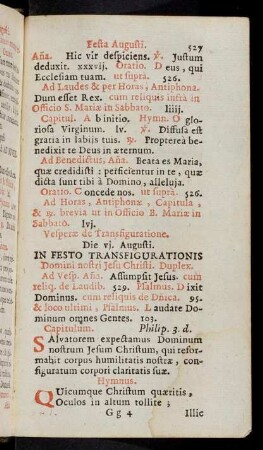 Festa Augusti. 527
Aña. Hic vir despiciens. ℣. Justum
deduxit. xxxvij. Oratio. Deus, qui
Ecclesiam tuam. ut suprà. 526.
Ad Laudes & per Horas, Antiphona.
Dum esset Rex. cum reliquis infrà in
Officio S. Mariæ in Sabbato liiij.
Capitul. Ab initio. Hymn. O glo-
riosa Virginum. lv. ℣. Diffusa est
gratia in labijs tuis. ℟. Propterea be-
nedixit te Deus in æternum.
Ad Benedictus, Aña. Beata es Maria,
quæ credidisti: perficientur in te, quæ
dicta sunt tibi à Domino, alleluja.
Oratio. Concede nos. ut suprà. 526.
Ad Horas, Antiphonæ, Capitula,
& ℟. brevia ut in Officio B. Mariæ in
Sabbato. lvj.
Vesperæ de Transfiguratione.
Die vj. Augusti.
IN FESTO TRANSFIGURATIONIS
Domini nostri Jesu Christi. Duplex.
Ad Vesp. Aña. Assumpsit Jesus. cum
reliq. de Laudib. 529. Psalmus. Dixit
Dominus. cum reliquis de Dñica. 95.
& loco ultimi, Psalmus. Laudate Do-
minum omnes Gentes. 103.
Capitulum. Philip. 3. d.
SAlvatorem expectamus Dominum
nostrum Jesum Christum, qui refor-
mabit corpus humilitatis nostræ, con-
figuratum corpori claritatis suæ.
Hymnus.
QUicumque Christum quæritis,
Oculos in altum tollite;
Gg 4 Illic